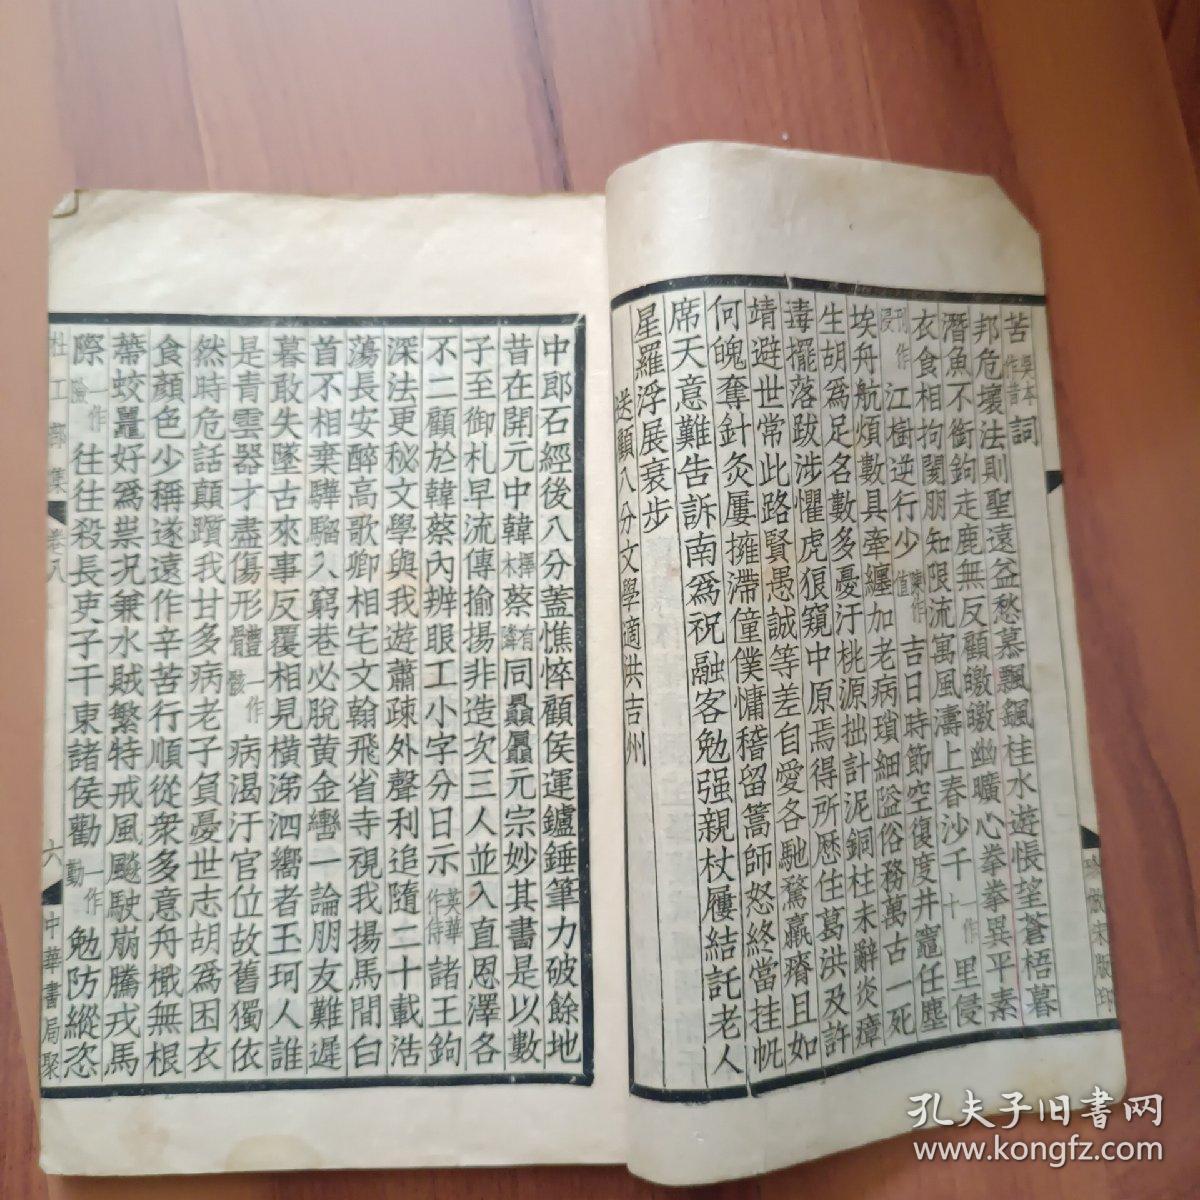 苦吳本作昔詞
邦危壞法則聖遠益愁慕飄颻桂水遊悵望蒼梧暮
潛魚不銜鉤走鹿無反顧皦皦幽曠心拳拳異平素
衣食相拘閡朋知限流寓風濤上春沙千一作十里侵
刊作浸江樹逆行少陳作值吉日時節空復度井竈任塵
埃舟航煩數具牽纏加老病瑣細隘俗務萬古一死
生胡爲足名數多憂汙桃源拙計泥銅柱未辭炎瘴
毒擺落跋涉懼虎狼窺中原焉得所歷住葛洪及許
靖避世常此路賢愚誠等差自愛各馳騖羸瘠且如
何魄奪針灸屢擁滯僮僕慵稽留篙師怒終當挂帆
席天意難告訴南爲祝融客勉强親杖屨結託老人
星羅浮展衰步
送顧八分文學適洪吉州
中郎石經後八分蓋憔悴顧侯運鑪錘筆力破餘地
昔在開元中韓擇木蔡有鄰同贔屭元宗妙其書是以數
子至御札早流傳揄揚非造次三人並入直恩澤各
不二顧於韓蔡內辨眼工小字分日示英華作侍諸王鉤
深法更秘文學與我遊蕭疎外聲利追隨二十載浩
蕩長安醉高歌卿相宅文翰飛省寺視我揚馬間白
首不相棄驊騮入窮巷必脫黃金轡一論朋友難遲
暮敢失墜古來事反覆相見橫涕泗嚮者玉珂人誰
是青雲器才盡傷形體一作骸病渴汙官位故舊獨依
然時危話顛躓我甘多病老子負憂世志胡爲困衣
食顏色少稱遂遠作辛苦行順從衆多意舟檝無根
蔕蛟鼉好爲祟況兼水賊繁特戒風飈駛崩騰戎馬
際一作險往往殺長吏子干東諸侯勸一作勤勉防縱恣
杜工部集 卷八
六
中華書局聚
珍倣宋版印
孔夫子旧书网
www.kongfz.com